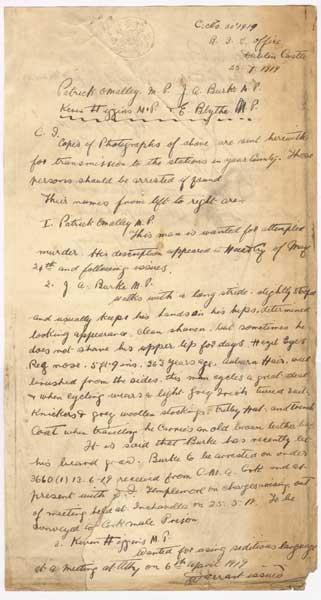 R. I. C. Office,
Dublin Castle
22 . 7 . 1919
Patrick O'Malley M.P. J. A. Burke M.P.
Kevin Higgins M.P. E. Blythe M.P.
C. I.
Copies of Photographs of above are sent herewith
for transmission to the stations in your County. These
persons should be arrested if found
Their names from left to right are:
1. Patrick O'Malley M.P.
This man is wanted for attempted
murder. His description appeared in Hue & Cry of May
and following issues.
2. J. A. Burke M.P.
walks with a long stride, slightly stooped
and usually keeps his hands on his hips, determined
looking appearance, clean shaven, but sometimes he
does not shave his upper lip for days. Hazel Eyes
Reg nose. 5 ft 9 ins. years age. Auburn Hair, well
brushed from the sides, this man cycles a great deal
& when cycling wears a light Grey Irish tweed suit
Knickers & grey woollen stockings, trilby Hat, and trench
Coat when travelling he carries an old brown leather bag
It is said that Burke has recently let
his beard grow. Burke to be arrested on order
13.6.19 received from Cork and at
present with D.I. Templemore on charges arising out
of meeting held at on 25.3.19. To be
conveyed to Cork male Prison
3. Kevin Higgins M.P.
Wanted for using seditious language
at a meeting at Athy on 6th April 1919
Warrant issued